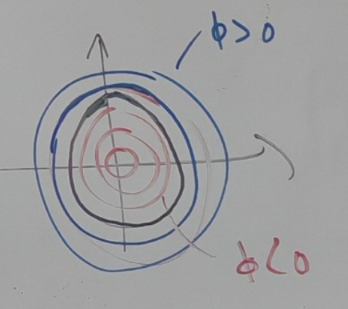 ϕ>0
ϕ<0